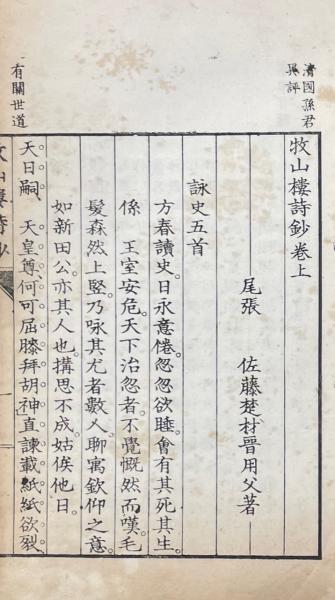 清國孫君
異評
牧山樓詩鈔卷上
尾張　佐藤楚材晉用父著
詠史五首
方春讀史。日永意倦。忽忽欲睡。會有其死其生
係　王室安危。天下治忽者。不覺慨然而嘆。毛
髮森然上竪。乃咏其尤者數人。聊寓欽仰之意。
如新田公。亦其人也。搆思不成。姑俟他日。
有關世道
天日嗣。　天皇尊。何可屈膝拜胡神。直諫載紙紙欲裂